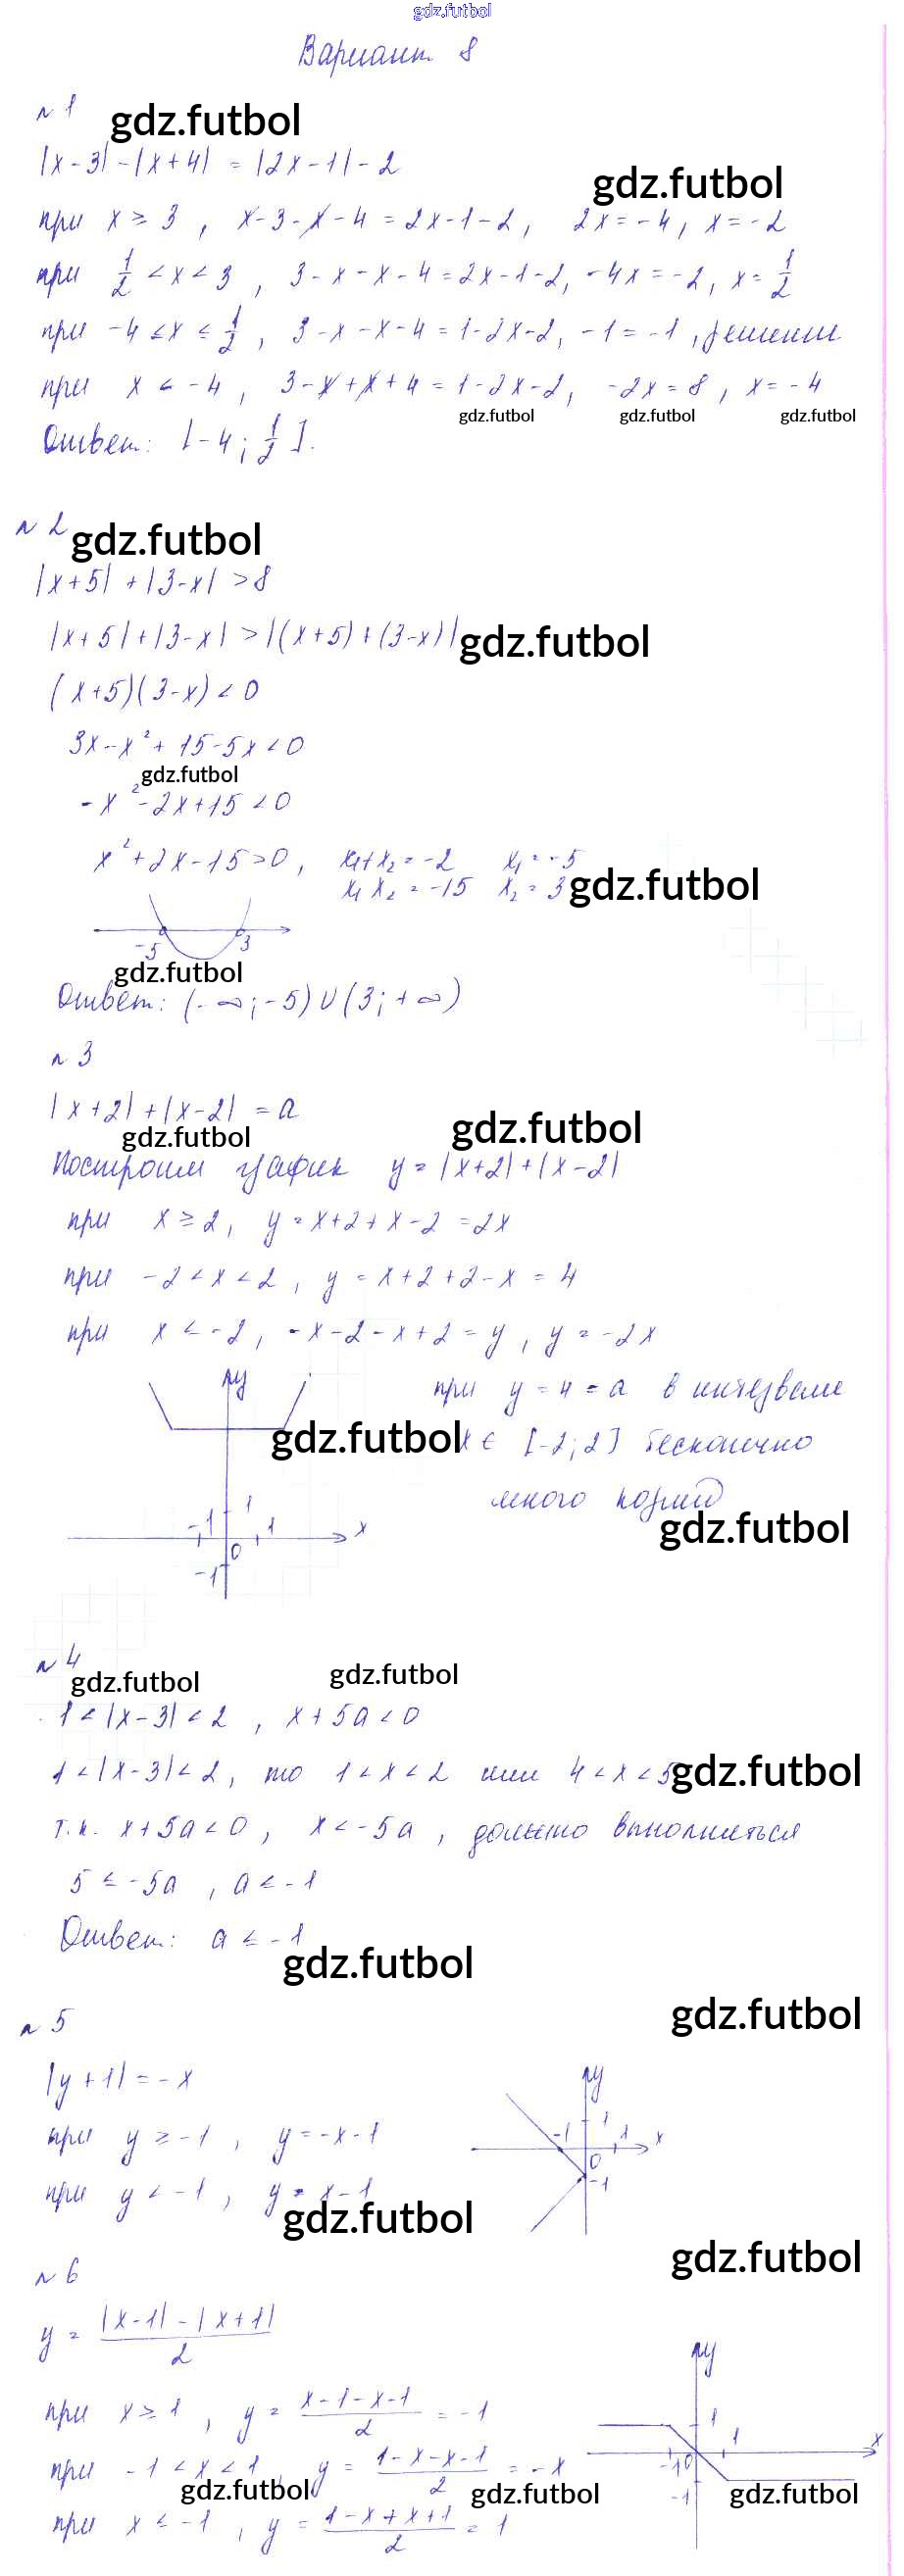 gdz.futbol
Вариант 8
№ 1 gdz.futbol
|x - 3| - |x + 4| = |2x - 1| - 2
gdz.futbol
при x ≥ 3 , x - 3 - x - 4 = 2x - 1 - 2 , 2x = -4 , x = -2
при 1/2 < x < 3 , 3 - x - x - 4 = 2x - 1 - 2, -4x = -2 , x = 1/2
при -4 ≤ x ≤ 1/2 , 3 - x - x - 4 = 1 - 2x - 2, -1 = -1 , решений
при x < -4 , 3 - x + x + 4 = 1 - 2x - 2, -2x = 8 , x = -4
gdz.futbol gdz.futbol gdz.futbol
Ответ: [-4; 1/2].
№ 2 gdz.futbol
|x + 5| + |3 - x| > 8
|x + 5| + |3 - x| > |(x + 5) + (3 - x)| gdz.futbol
(x + 5)(3 - x) < 0
3x - x² + 15 - 5x < 0
gdz.futbol
-x² - 2x + 15 < 0
x² + 2x - 15 > 0 , x₁ + x₂ = -2 x₁ = -5
x₁ x₂ = -15 x₂ = 3 gdz.futbol
-5 3
gdz.futbol
Ответ: (-∞; -5) ∪ (3; +∞)
№ 3
|x + 2| + |x - 2| = a
gdz.futbol gdz.futbol
Построим график y = |x + 2| + |x - 2|
при x ≥ 2 , y = x + 2 + x - 2 = 2x
при -2 < x < 2 , y = x + 2 + 2 - x = 4
при x ≤ -2 , -x - 2 - x + 2 = y , y = -2x
y
при y = 4 = a в интервале
gdz.futbol x ∈ [-2; 2] бесконечно
много корней
gdz.futbol
-1 1 1 x
0
-1
№ 4
gdz.futbol gdz.futbol
1 < |x - 3| < 2 , x + 5a < 0
1 < |x - 3| < 2 , то 1 < x < 2 или 4 < x < 5 gdz.futbol
т.к. x + 5a < 0 , x < -5a , должно выполняться
5 ≤ -5a , a ≤ -1
Ответ: a ≤ -1
gdz.futbol
gdz.futbol
№ 5
|y + 1| = -x
при y ≥ -1 , y = -x - 1
при y < -1 , y = x - 1
y
-1 1 1 x
0
-1
gdz.futbol
gdz.futbol
№ 6
y = (|x - 1| - |x + 1|)/2
при x ≥ 1 , y = (x - 1 - x - 1)/2 = -1
при -1 < x < 1 , y = (1 - x - x - 1)/2 = -x
gdz.futbol gdz.futbol gdz.futbol
при x ≤ -1 , y = (1 - x + x + 1)/2 = 1
y
1 1 x
-1 0
-1